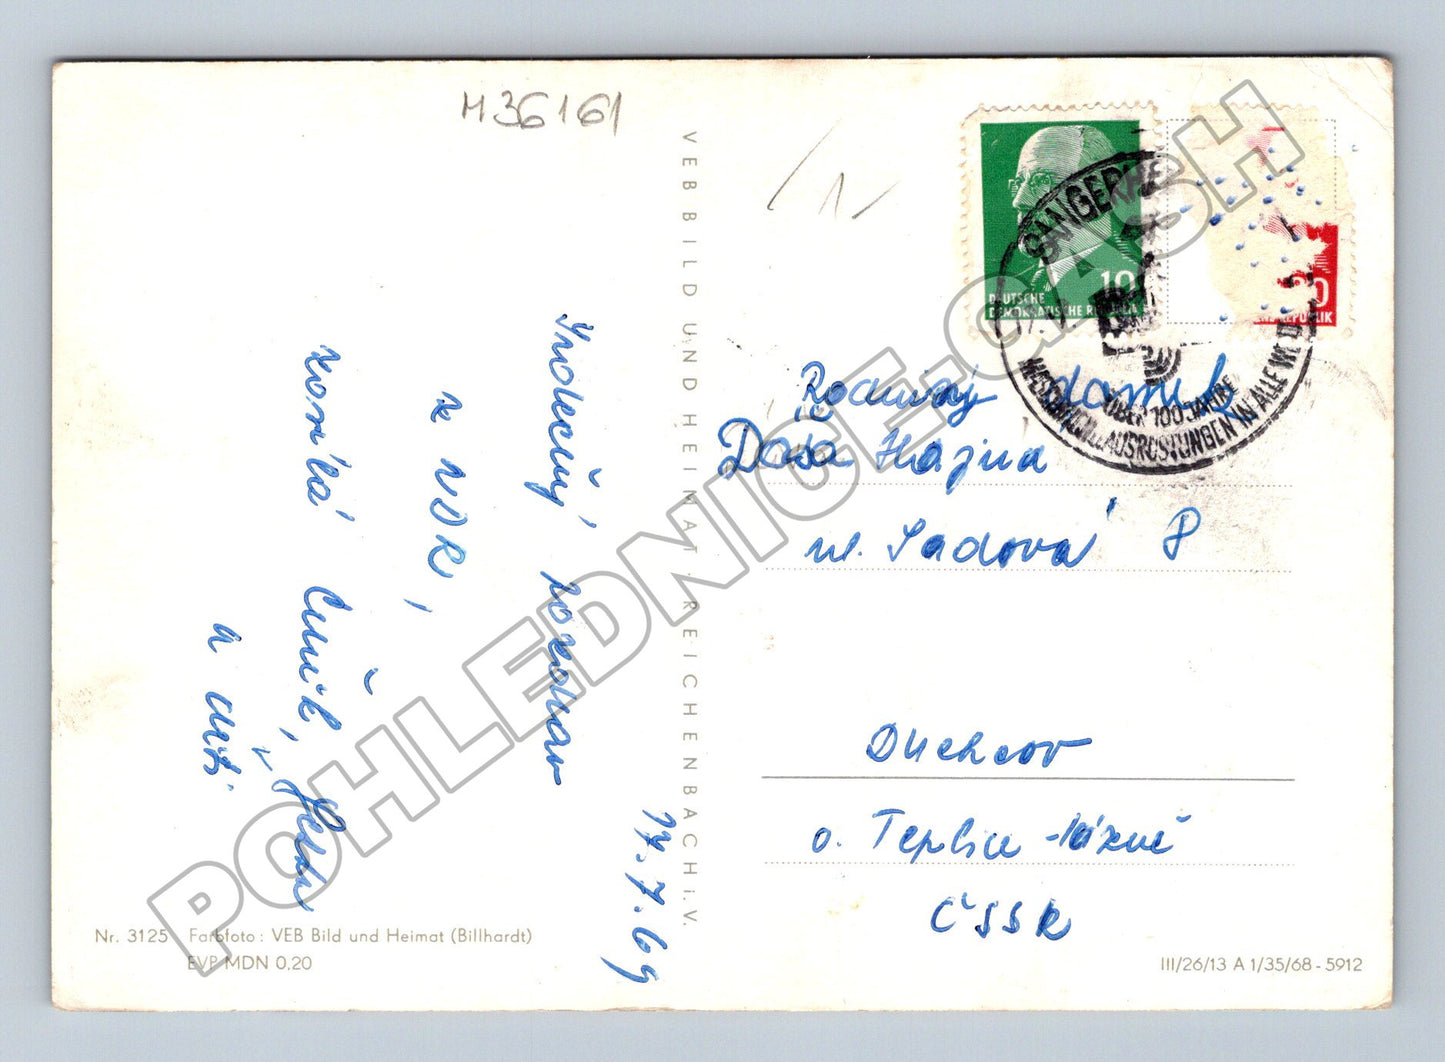 M36161
1
17.7.69
Srdečný pozdrav
z NDR,
zasílá
a děti
VEB BILD UND HEIMAT · REICHENBACH i.V.
DEUTSCHE
DEMOKRATISCHE REPUBLIK
10
20
REPUBLIK
SANGERHE
ÜBER 100 JAHRE
MASCHINEN U. AUSRÜSTUNGEN IN ALLE WELT
Rodinný
Daša Hájna
ul. Sadová 8
Duchcov
o. Teplice-lázně
ČSSR
Nr. 3125 Farbfoto: VEB Bild und Heimat (Billhardt)
EVP MDN 0,20
III/26/13 A 1/35/68 - 5912
POHLEDNICE.CASH